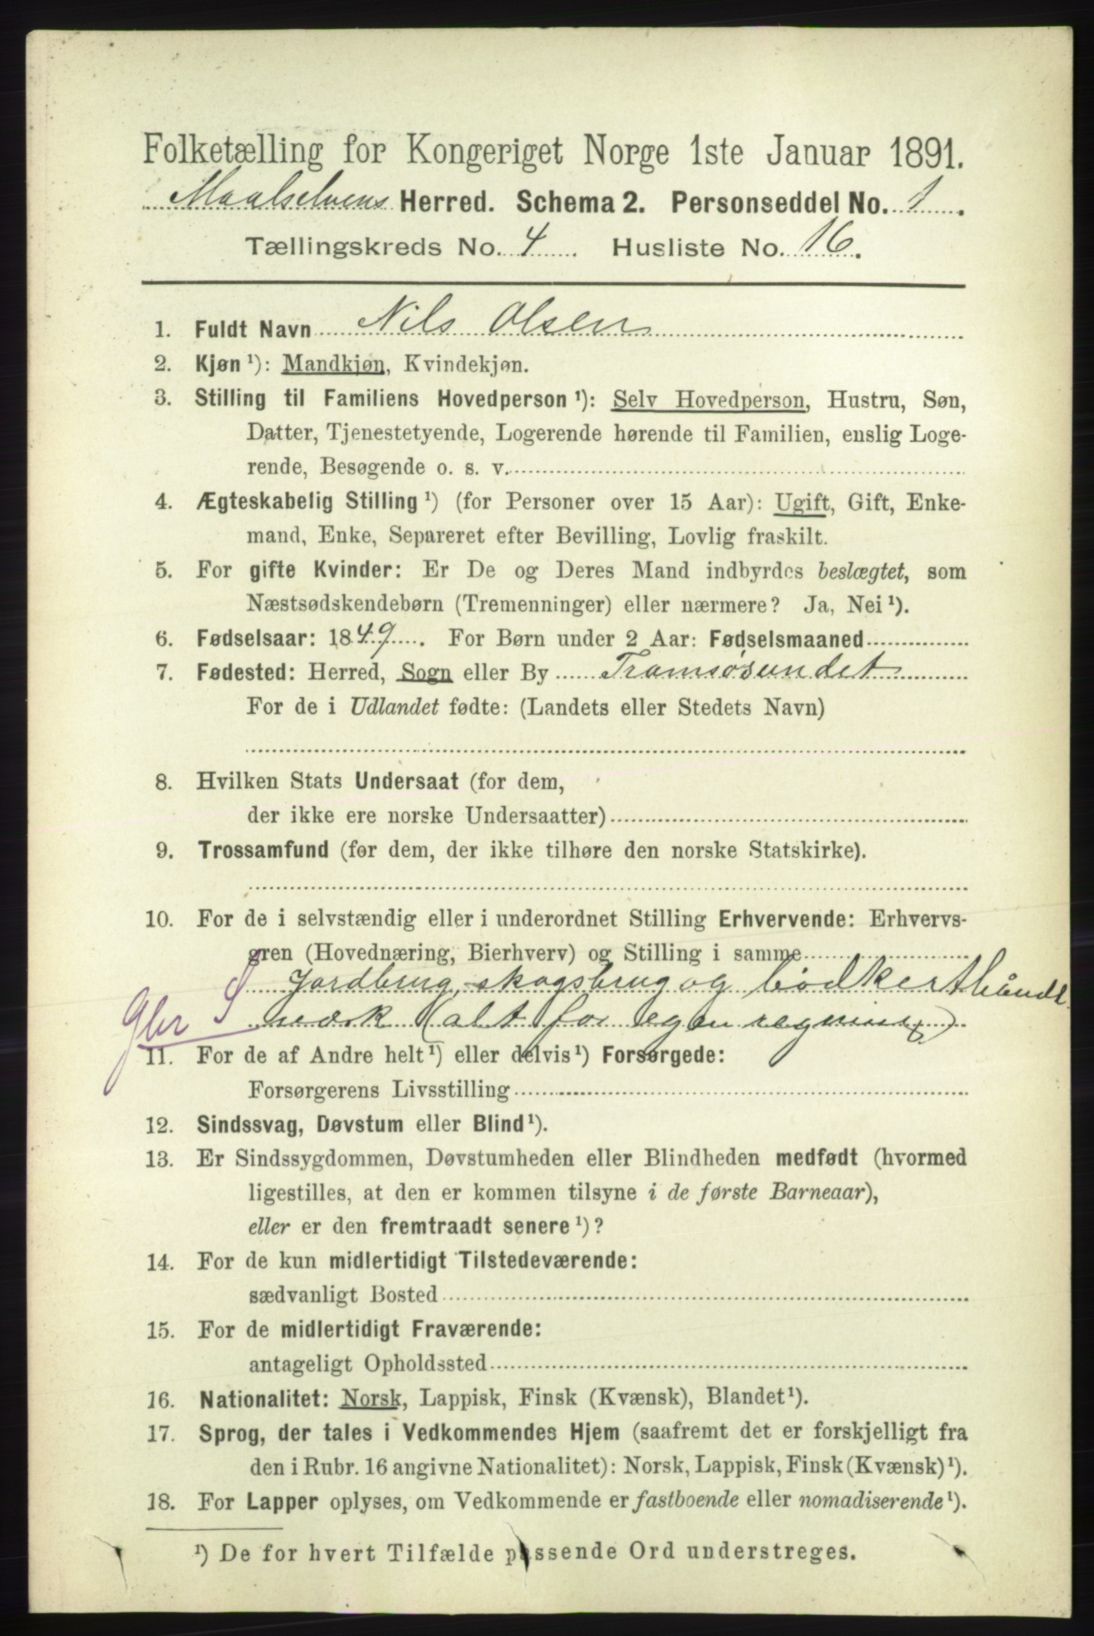 Folketælling for Kongeriget Norge 1ste Januar 1891.
Maalselvens Herred. Schema 2. Personseddel No. 1.
Tællingskreds No. 4. Husliste No. 16.
1. Fuldt Navn Nils Olsen
2. Kjøn ¹): Mandkjøn, Kvindekjøn.
3. Stilling til Familiens Hovedperson ¹): Selv Hovedperson, Hustru, Søn,
Datter, Tjenestetyende, Logerende hørende til Familien, enslig Loge-
rende, Besøgende o. s. v.
4. Ægteskabelig Stilling ¹) (for Personer over 15 Aar): Ugift, Gift, Enke-
mand, Enke, Separeret efter Bevilling, Lovlig fraskilt.
5. For gifte Kvinder: Er De og Deres Mand indbyrdes beslægtet, som
Næstsødskendebørn (Tremenninger) eller nærmere? Ja, Nei ¹).
6. Fødselsaar: 1849. For Børn under 2 Aar: Fødselsmaaned
7. Fødested: Herred, Sogn eller By Tromsøsundet
For de i Udlandet fødte: (Landets eller Stedets Navn)
8. Hvilken Stats Undersaat (for dem,
der ikke ere norske Undersaatter)
9. Trossamfund (for dem, der ikke tilhøre den norske Statskirke).
10. For de i selvstændig eller i underordnet Stilling Erhvervende: Erhvervs-
gren (Hovednæring, Bierhverv) og Stilling i samme
Jordbrug, skogsbrug og bødkerthåndt
Gbr S værk (alt for egen regning)
11. For de af Andre helt ¹) eller delvis ¹) Forsørgede:
Forsørgerens Livsstilling
12. Sindssvag, Døvstum eller Blind ¹).
13. Er Sindssygdommen, Døvstumheden eller Blindheden medfødt (hvormed
ligestilles, at den er kommen tilsyne i de første Barneaar),
eller er den fremtraadt senere ¹)?
14. For de kun midlertidigt Tilstedeværende:
sædvanligt Bosted
15. For de midlertidigt Fraværende:
antageligt Opholdssted
16. Nationalitet: Norsk, Lappisk, Finsk (Kvænsk), Blandet ¹).
17. Sprog, der tales i Vedkommendes Hjem (saafremt det er forskjelligt fra
den i Rubr. 16 angivne Nationalitet): Norsk, Lappisk, Finsk (Kvænsk) ¹).
18. For Lapper oplyses, om Vedkommende er fastboende eller nomadiserende ¹).
¹) De for hvert Tilfælde passende Ord understreges.